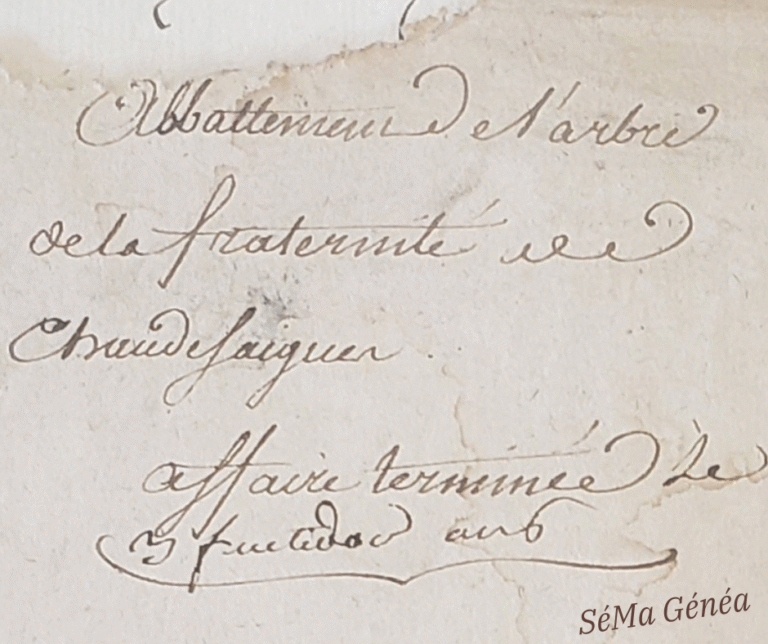 Abbattement de l'arbre
de la fraternité de
Chaudesaigues
affaire terminée le
3 fructidor an 6
SéMa Généa